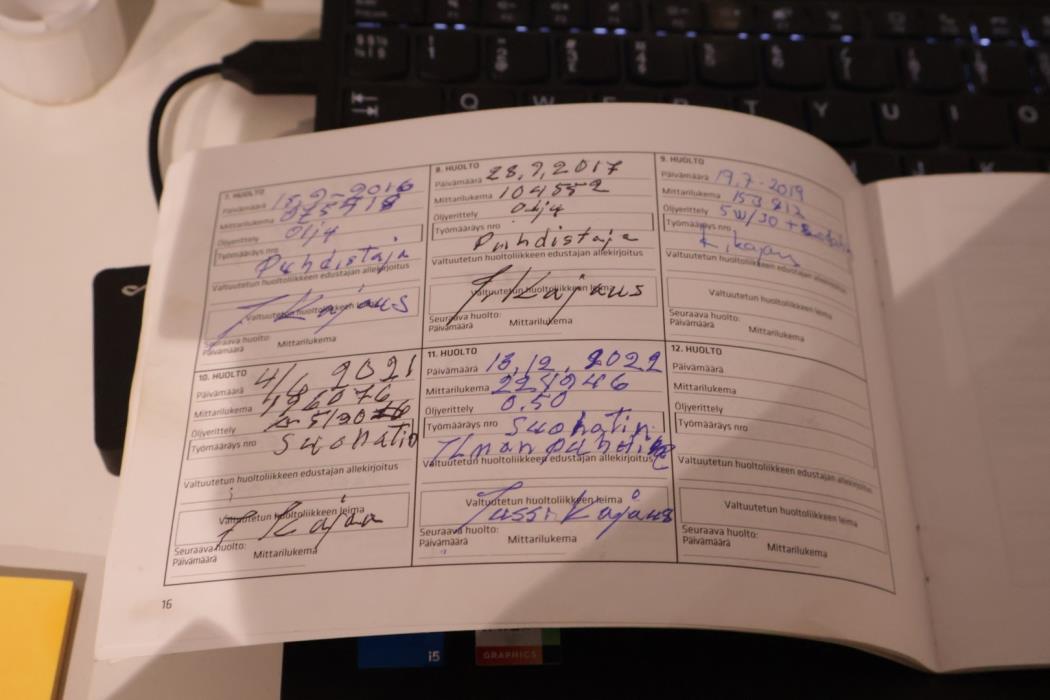 Q W E R T Y U I O
7. HUOLTO
Päivämäärä 15.9-2016
Mittarilukema
Öljyerittely Öljy
Työmääräys nro
Puhdistaja
Valtuutetun huoltoliikkeen edustajan allekirjoitus
Valtuutetun huoltoliikkeen leima
J Kajaus
Seuraava huolto:
Päivämäärä Mittarilukema
8. HUOLTO
Päivämäärä 28,9,2017
Mittarilukema 104552
Öljyerittely Öljy
Työmääräys nro
Puhdistaja
Valtuutetun huoltoliikkeen edustajan allekirjoitus
Valtuutetun huoltoliikkeen leima
J. Kajaus
Seuraava huolto:
Päivämäärä Mittarilukema
9. HUOLTO
Päivämäärä 19.7-2019
Mittarilukema 153812
Öljyerittely 5W/30 +
Työmääräys nro
Valtuutetun huoltoliikkeen edustajan allekirjoitus
Valtuutetun huoltoliikkeen leima
Seuraava huolto:
Päivämäärä Mittarilukema
10. HUOLTO
Päivämäärä 4/6 2021
Mittarilukema 186076
Öljyerittely
Työmääräys nro Suodatin
Valtuutetun huoltoliikkeen edustajan allekirjoitus
Valtuutetun huoltoliikkeen leima
Seuraava huolto:
Päivämäärä Mittarilukema
11. HUOLTO
Päivämäärä 13,12,2022
Mittarilukema
Öljyerittely 0.50
Työmääräys nro Suodatin
Ilman
Valtuutetun huoltoliikkeen edustajan allekirjoitus
Valtuutetun huoltoliikkeen leima
Jussi Kajaus
Seuraava huolto:
Päivämäärä Mittarilukema
12. HUOLTO
Päivämäärä
Mittarilukema
Öljyerittely
Työmääräys nro
Valtuutetun huoltoliikkeen edustajan allekirjoitus
Valtuutetun huoltoliikkeen leima
Seuraava huolto:
Päivämäärä Mittarilukema
16
i5
GRAPHICS